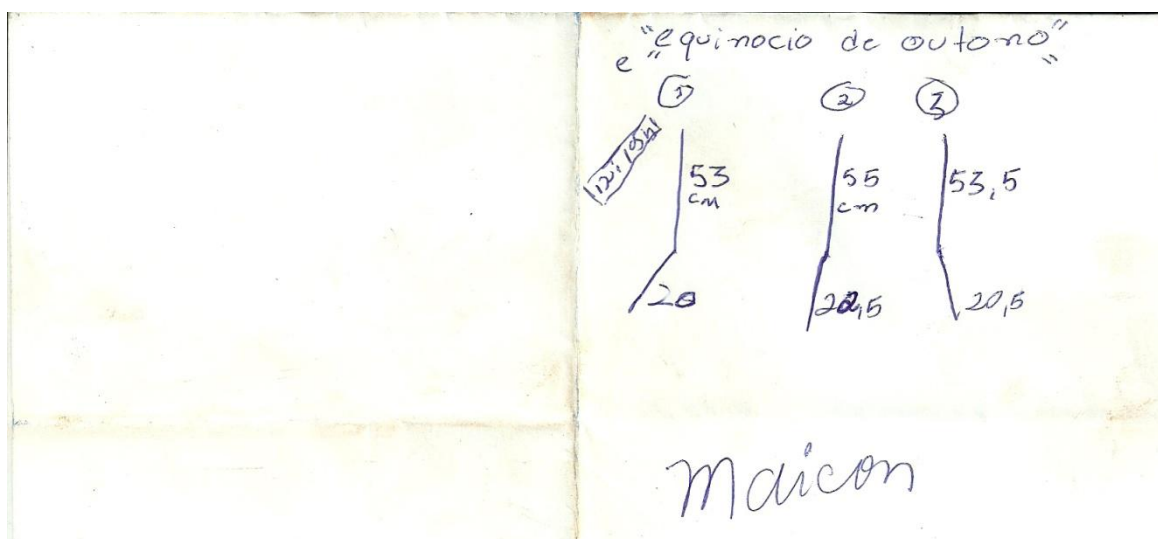 "equinocio de outono"
e " "
1 2 3
53 cm 55 cm 53,5
20 22,5 20,5
Maicon